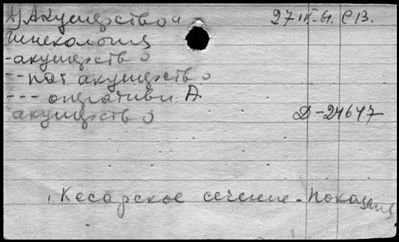 А) Акушерство и 27 IX-61. СВ.
Гинекология
- акушерство
- - пат акушерство
- - - оперативн. А.
акушерство Д-24647
Кесарское сечение - Показания